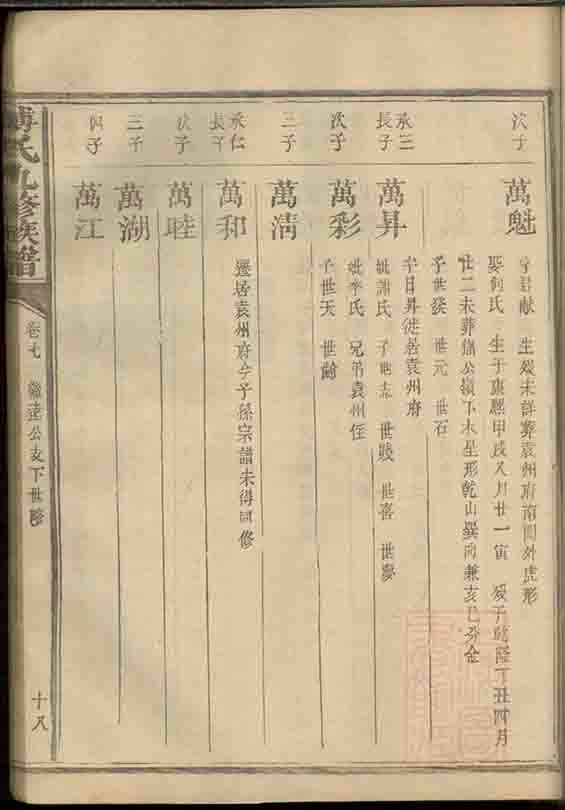 次子
萬魁
字君献 生歿未詳葬袁州府南門外虎形
娶何氏 生于康熙甲戌八月廿一寅 歿于乾隆丁丑四月
廿二未葬儁公嶺下木星形乾山巽向兼亥巳分金
子世發 世元 世石
承三
長子
萬昇
字日昇徙居袁州府
妣謝氏 子世志 世賤 世喜 世夢
次子
萬彩
妣李氏 兄弟袁州住
子世天 世
三子
萬淸
承仁
長子
萬和
遷居袁州府今子孫宗譜未得同修
次子
萬睦
三子
萬湖
四子
萬江
氏九修族譜
卷七 達公支下世
十八